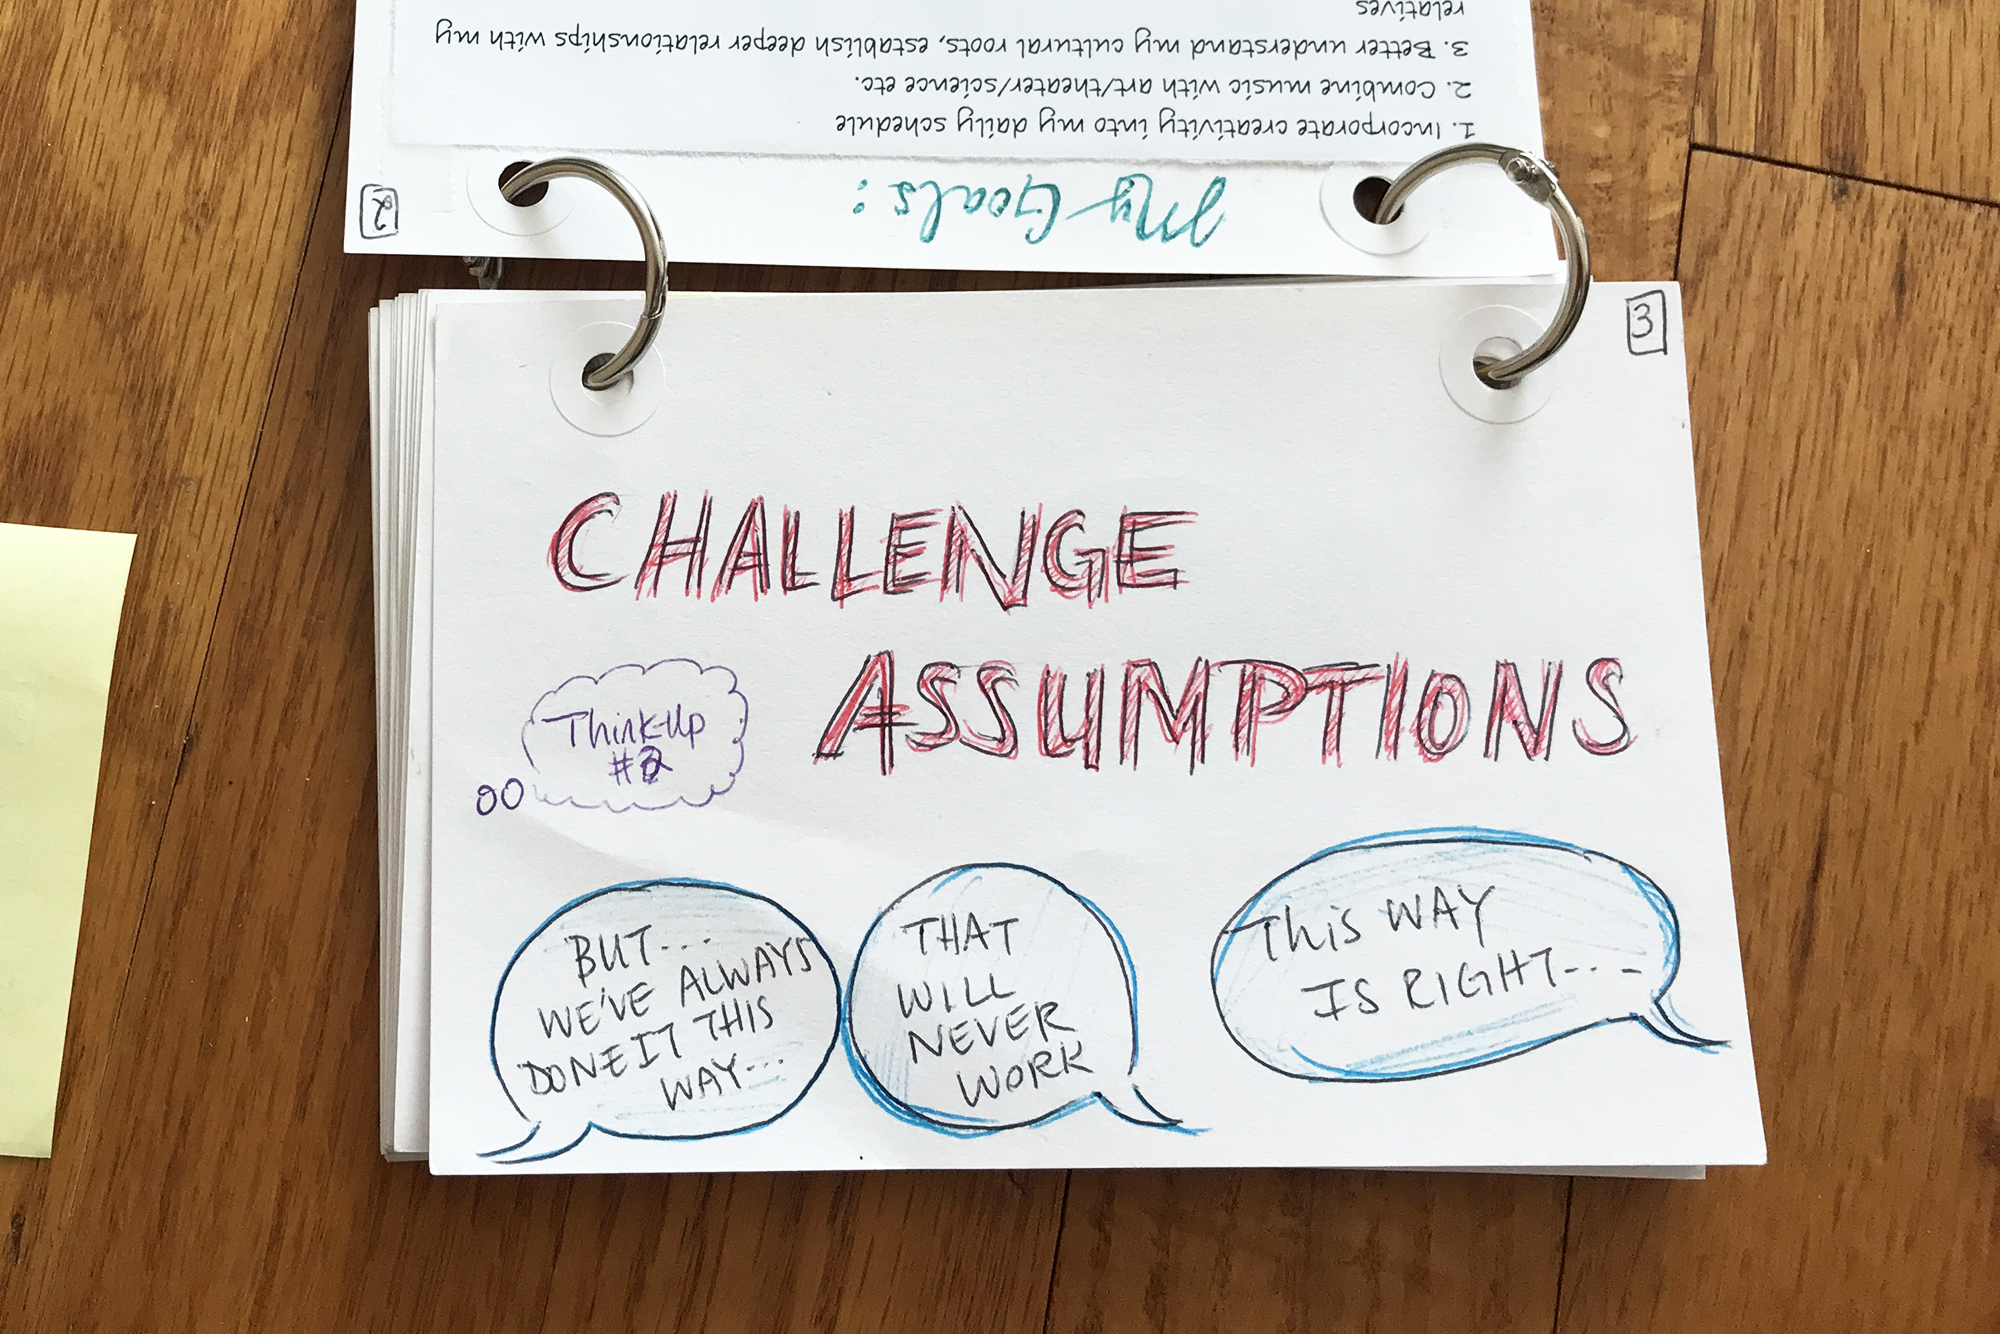 2
My Goals:
1. Incorporate creativity into my daily schedule
2. Combine music with art/theater/science etc.
3. Better understand my cultural roots, establish deeper relationships with my
relatives
3
CHALLENGE
ASSUMPTIONS
Think-Up
#2
BUT...
WE'VE ALWAYS
DONE IT THIS
WAY...
THAT
WILL
NEVER
WORK
THiS WAY
IS RIGHT...